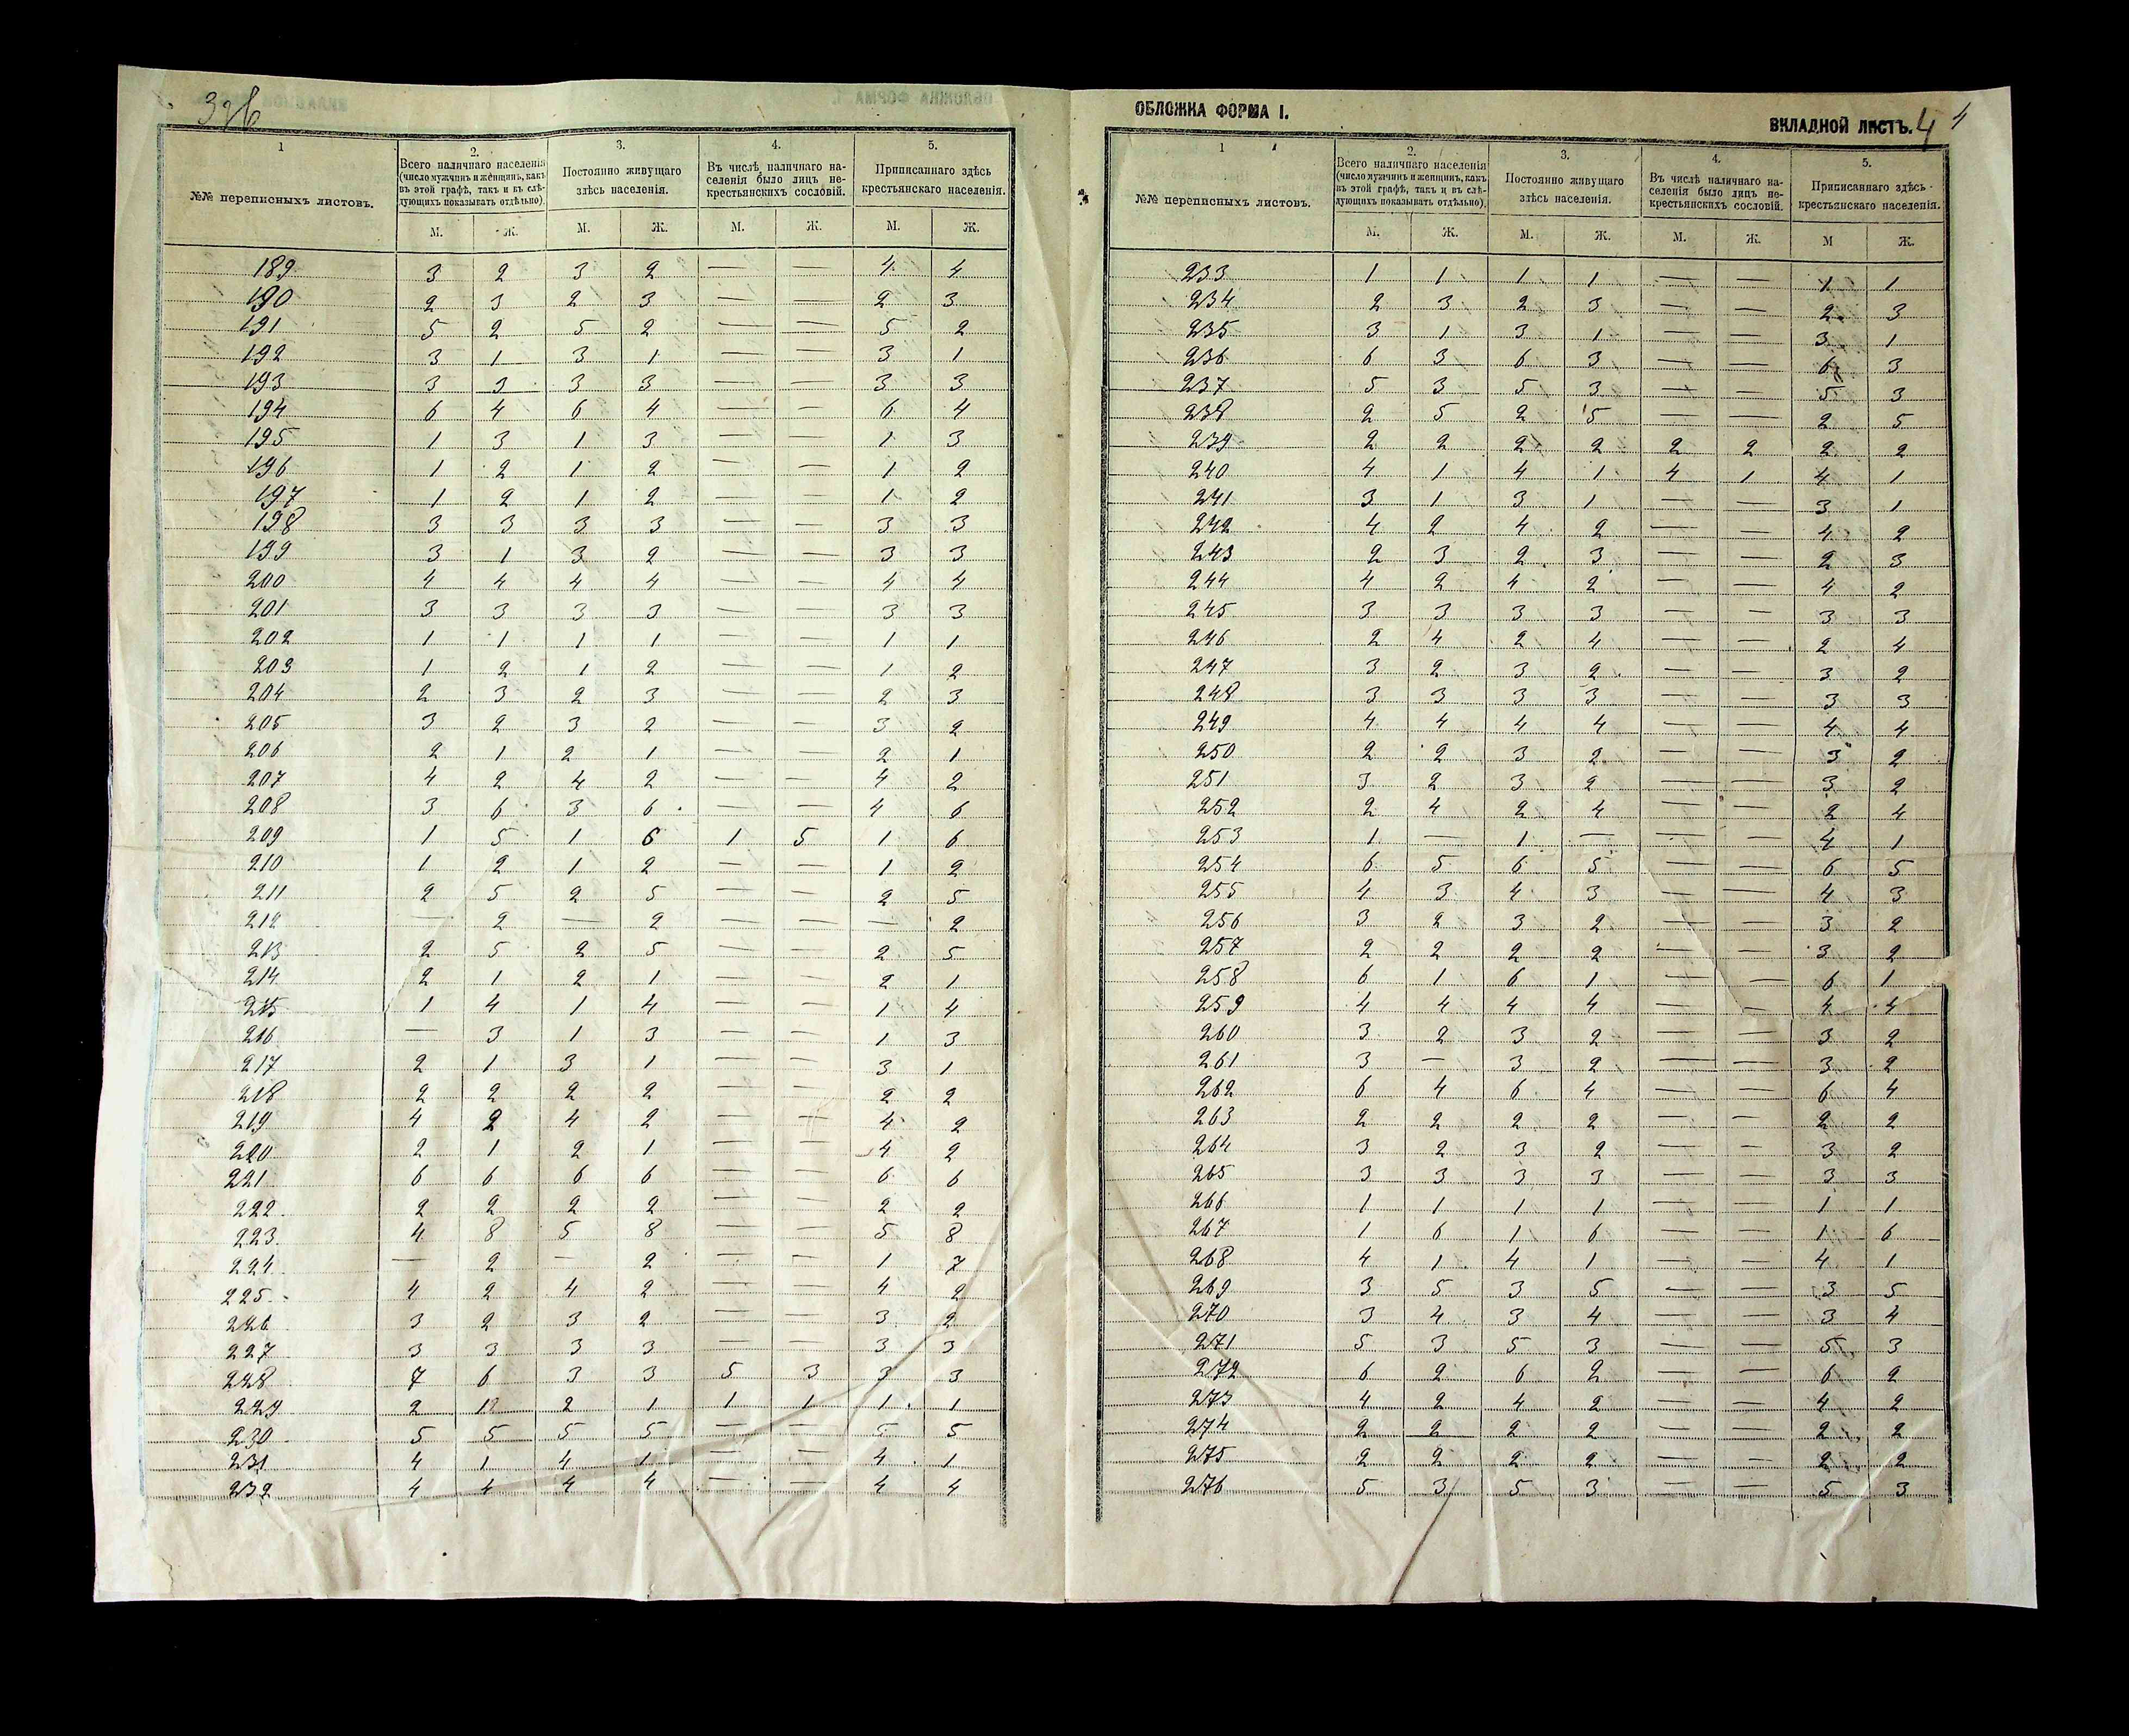 326
1
2.
3.
4.
5.
№№ переписныхъ листовъ.
Всего наличнаго населенія
(число мужчинъ и женщинъ, какъ
въ этой графѣ, такъ и въ слѣ-
дующихъ показывать отдѣльно)
Постоянно живущаго
здѣсь населенія.
Въ числѣ наличнаго на-
селенія было лицъ не-
крестьянскихъ сословій.
Приписаннаго здѣсь
крестьянскаго населенія.
М. Ж. М. Ж. М. Ж. М. Ж.
189 3 2 3 2 — — 4 4
190 2 3 2 3 — — 2 3
191 5 2 5 2 — — 5 2
192 3 1 3 1 — — 3 1
193 3 3 3 3 — — 3 3
194 6 4 6 4 — — 6 4
195 1 3 1 3 — — 1 3
196 1 2 1 2 — — 1 2
197 1 2 1 2 — — 1 2
198 3 3 3 3 — — 3 3
199 3 1 3 2 — — 3 3
200 4 4 4 4 — — 4 4
201 3 3 3 3 — — 3 3
202 1 1 1 1 — — 1 1
203 1 2 1 2 — — 1 2
204 2 3 2 3 — — 2 3
205 3 2 3 2 — — 3 2
206 2 1 2 1 — — 2 1
207 4 2 4 2 — — 4 2
208 3 6 3 6 — — 4 6
209 1 5 1 6 1 5 1 6
210 1 2 1 2 — — 1 2
211 2 5 2 5 — — 2 5
212 — 2 — 2 — — — 2
213 2 5 2 5 — — 2 5
214 2 1 2 1 — — 2 1
215 1 4 1 4 — — 1 4
216 — 3 1 3 — — 1 3
217 2 1 3 1 — — 3 1
218 2 2 2 2 — — 2 2
219 4 2 4 2 — — 4 2
220 2 1 2 1 — — 4 2
221 6 6 6 6 — — 6 6
222 2 2 2 2 — — 2 2
223 4 8 5 8 — — 5 8
224 — 2 — 2 — — 1 7
225 4 2 4 2 — — 4 2
226 3 2 3 2 — — 3 2
227 3 3 3 3 — — 3 3
228 7 6 3 3 5 3 3 3
229 2 2 1 1 1 1 1
230 5 5 5 5 — — 5 5
231 4 1 4 1 — — 4 1
232 4 4 4 4 — — 4 4
ОБЛОЖКА ФОРМА I.
ВКЛАДНОЙ ЛИСТЪ. 4 4
1
2.
3.
4.
5.
№№ переписныхъ листовъ.
Всего наличнаго населенія
(число мужчинъ и женщинъ, какъ
въ этой графѣ, такъ и въ слѣ-
дующихъ показывать отдѣльно).
Постоянно живущаго
здѣсь населенія.
Въ числѣ наличнаго на-
селенія было лицъ не-
крестьянскихъ сословій.
Приписаннаго здѣсь
крестьянскаго населенія.
М. Ж. М. Ж. М. Ж. М Ж.
233 1 1 1 1 — — 1 1
234 2 3 2 3 — — 2 3
235 3 1 3 1 — — 3 1
236 6 3 6 3 — — 6 3
237 5 3 5 3 — — 5 3
238 2 5 2 5 — — 2 5
239 2 2 2 2 2 2 2 2
240 4 1 4 1 4 1 4 1
241 3 1 3 1 — — 3 1
242 4 2 4 2 — — 4 2
243 2 3 2 3 — — 2 3
244 4 2 4 2 — — 4 2
245 3 3 3 3 — — 3 3
246 2 4 2 4 — — 2 4
247 3 2 3 2 — — 3 2
248 3 3 3 3 — — 3 3
249 4 4 4 4 — — 4 4
250 2 2 3 2 — — 3 2
251 3 2 3 2 — — 3 2
252 2 4 2 4 — — 2 4
253 1 — 1 — — — 4 1
254 6 5 6 5 — — 6 5
255 4 3 4 3 — — 4 3
256 3 2 3 2 — — 3 2
257 2 2 2 2 — — 3 2
258 6 1 6 1 — — 6 1
259 4 4 4 4 — — 4 4
260 3 2 3 2 — — 3 2
261 3 — 3 2 — — 3 2
262 6 4 6 4 — — 6 4
263 2 2 2 2 — — 2 2
264 3 2 3 2 — — 3 2
265 3 3 3 3 — — 3 3
266 1 1 1 1 — — 1 1
267 1 6 1 6 — — 1 6
268 4 1 4 1 — — 4 1
269 3 5 3 5 — — 3 5
270 3 4 3 4 — — 3 4
271 5 3 5 3 — — 5 3
272 6 2 6 2 — — 6 2
273 4 2 4 2 — — 4 2
274 2 2 2 2 — — 2 2
275 2 2 2 2 — — 2 2
276 5 3 5 3 — — 5 3